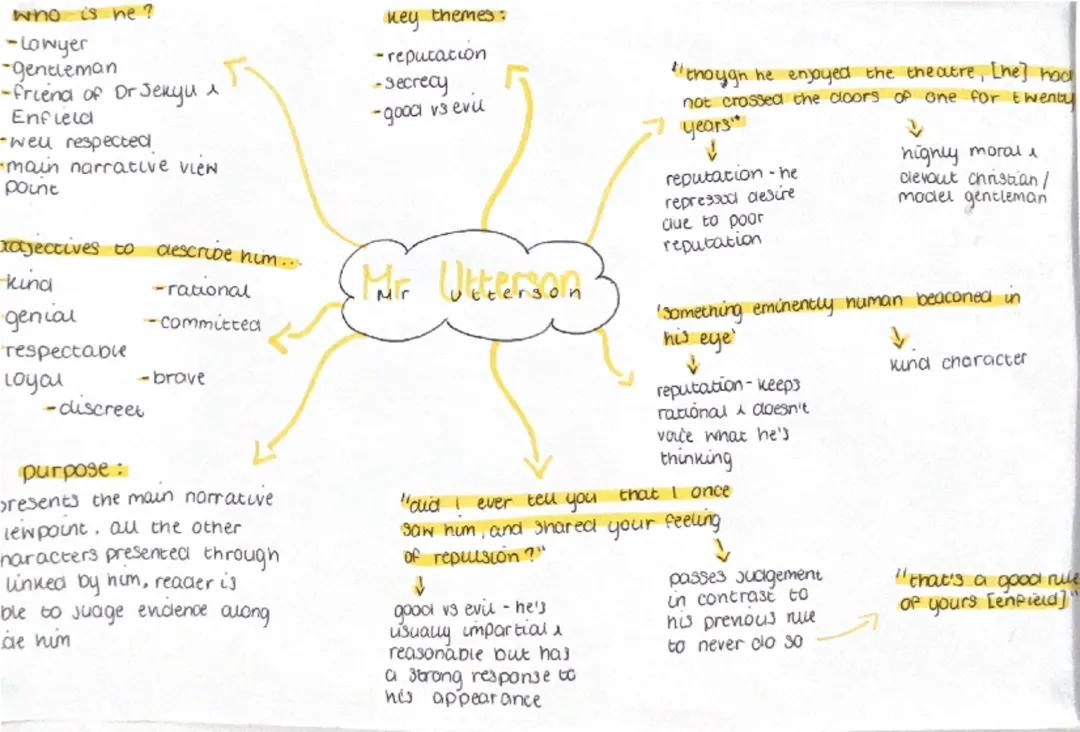 who is he?
-Lawyer
-gentleman
-friend of Dr Jekyll &
Enfield
-well respected
-main narrative view
point
key themes:
-reputation
-secrecy
-good vs evil
"though he enjoyed the theatre, [he] had
not crossed the doors of one for twenty
years"
reputation - he
repressed desire
due to poor
reputation
highly moral &
devout christian/
model gentleman
adjectives to describe him...
-kind
genial
respectable
loyal
-discreet
-rational
-committed
-brave
Mr Utterson
Mr Utterson
'something eminently human beaconed in
his eye'
reputation - keeps
rational & doesn't
voice what he's
thinking
kind character
purpose:
presents the main narrative
iewpoint. all the other
haracters presented through
linked by him, reader is
ble to judge evidence along
ide him
"did I ever tell you that I once
saw him, and shared your feeling
of repulsion?"
good vs evil - he's
usually impartial &
reasonable but has
a strong response to
his appearance
passes judgement
in contrast to
his previous rule
to never do so
"that's a good rule
of yours [enfield]"